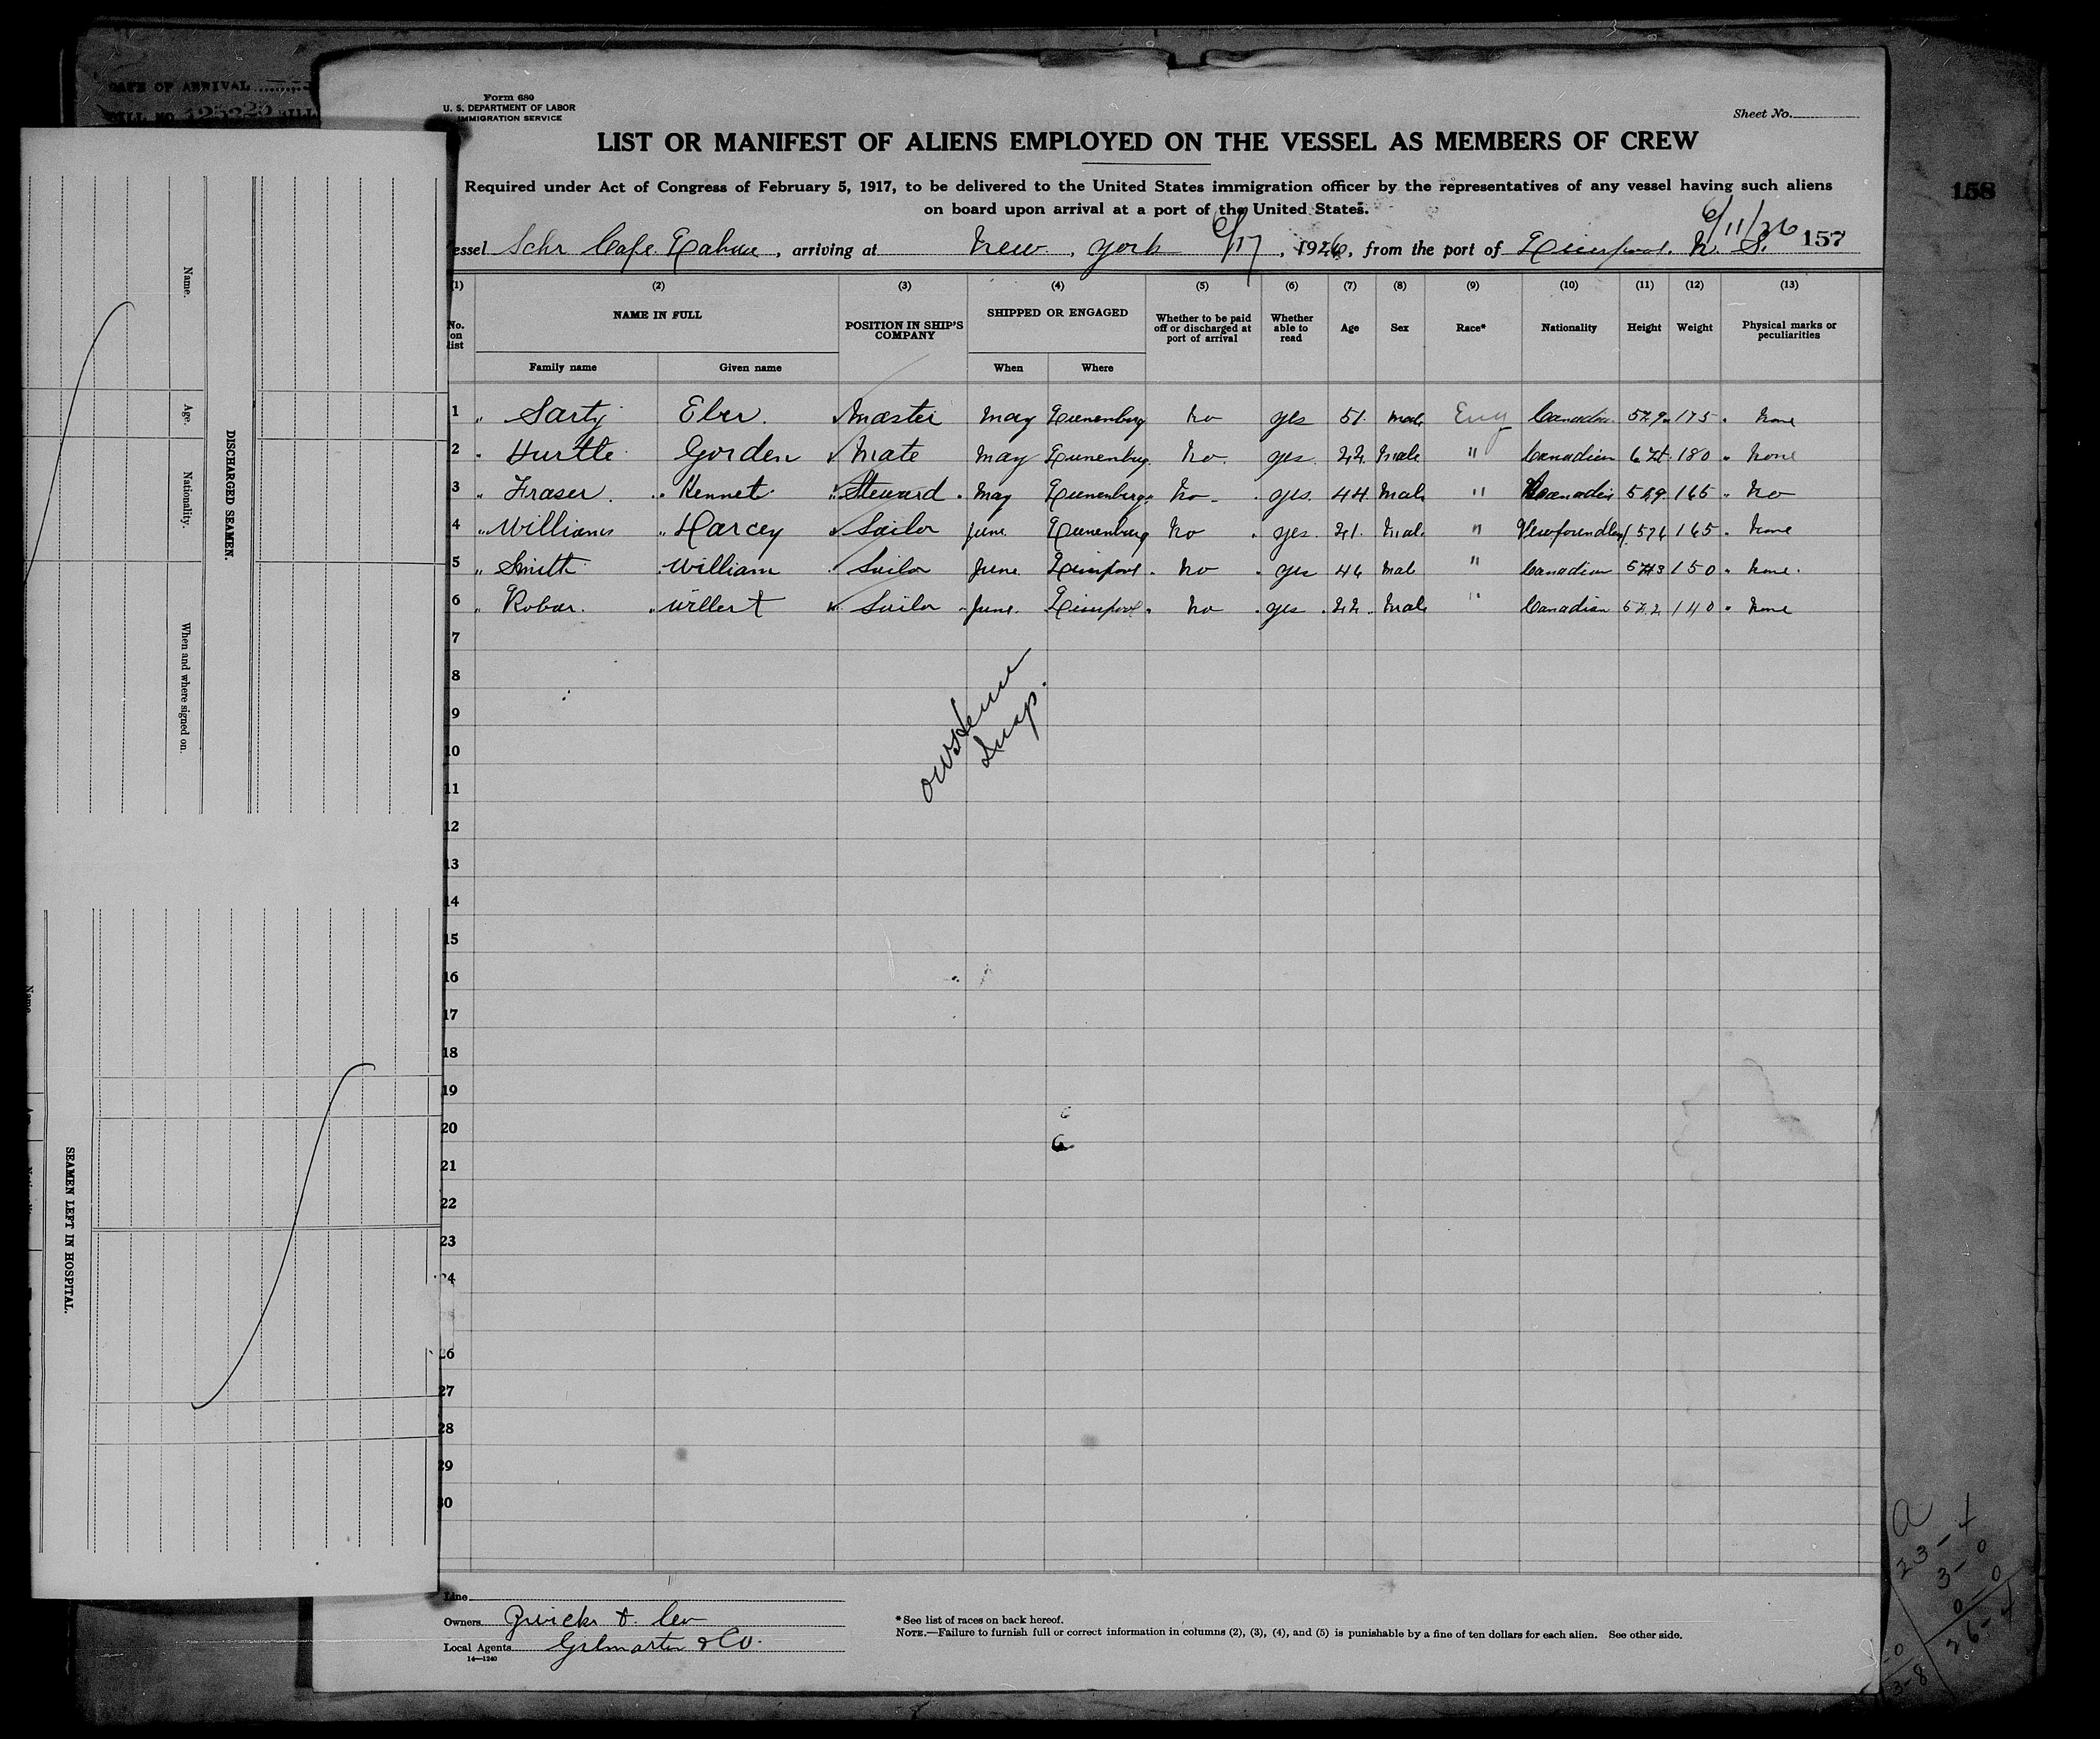 DATE OF ARRIVAL
BILL NO. 125220
158
Form 680
U. S. DEPARTMENT OF LABOR
IMMIGRATION SERVICE
Sheet No.
LIST OR MANIFEST OF ALIENS EMPLOYED ON THE VESSEL AS MEMBERS OF CREW
Required under Act of Congress of February 5, 1917, to be delivered to the United States immigration officer by the representatives of any vessel having such aliens
on board upon arrival at a port of the United States.
6/11/26
essel Schr Cape, arriving at New York 6/17, 1926, from the port of Liverpool. N. S. 157
(1) (2) (3) (4) (5) (6) (7) (8) (9) (10) (11) (12) (13)
No. on list NAME IN FULL POSITION IN SHIP'S COMPANY SHIPPED OR ENGAGED Whether to be paid off or discharged at port of arrival Whether able to read Age Sex Race* Nationality Height Weight Physical marks or peculiarities
Family name Given name When Where
1 " Sarty Eber. Master May Lunenburg No yes 51. Male Eng Canadian 175 None
2 Hurtle Gorden Mate May Lunenburg. No. yes 22. Male " Canadian 180 " None
3 " Fraser. Kennet Steward. May Lunenburg. No yes 44. Male " Canadian 165 " No
4 " Williams " Harcey Sailor June. Lunenburg No yes. 21. Male. " 165 " None
5 " Smith William Sailor June. Liverpool. No yes 46 Mal " Canadian 150 " None.
6 " Robar. " Willert Sailor June. Liverpool. No yes. 22. Male " Canadian 140 " None
7
8
9
10
11
12
13
14
15
16
17
18
19
20
6
21
22
23
24
26
27
28
29
30
Insp.
Line
Owners Zwicker & Co
Local Agents Gilmartin & Co.
14—1240
*See list of races on back hereof.
NOTE.—Failure to furnish full or correct information in columns (2), (3), (4), and (5) is punishable by a fine of ten dollars for each alien. See other side.
DISCHARGED SEAMEN.
Name.
Age.
Nationality.
When and where signed on.
SEAMEN LEFT IN HOSPITAL.
a
23-4
3-0
0 0
26-4
3-8